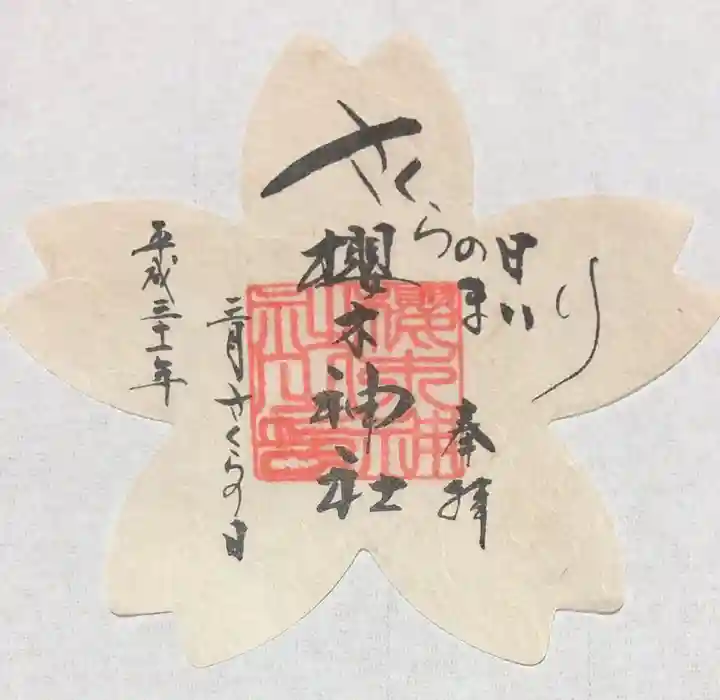 さくらの日まいり
奉拝
櫻木神社
三月さくらの日
平成三十一年
櫻木神
社之印